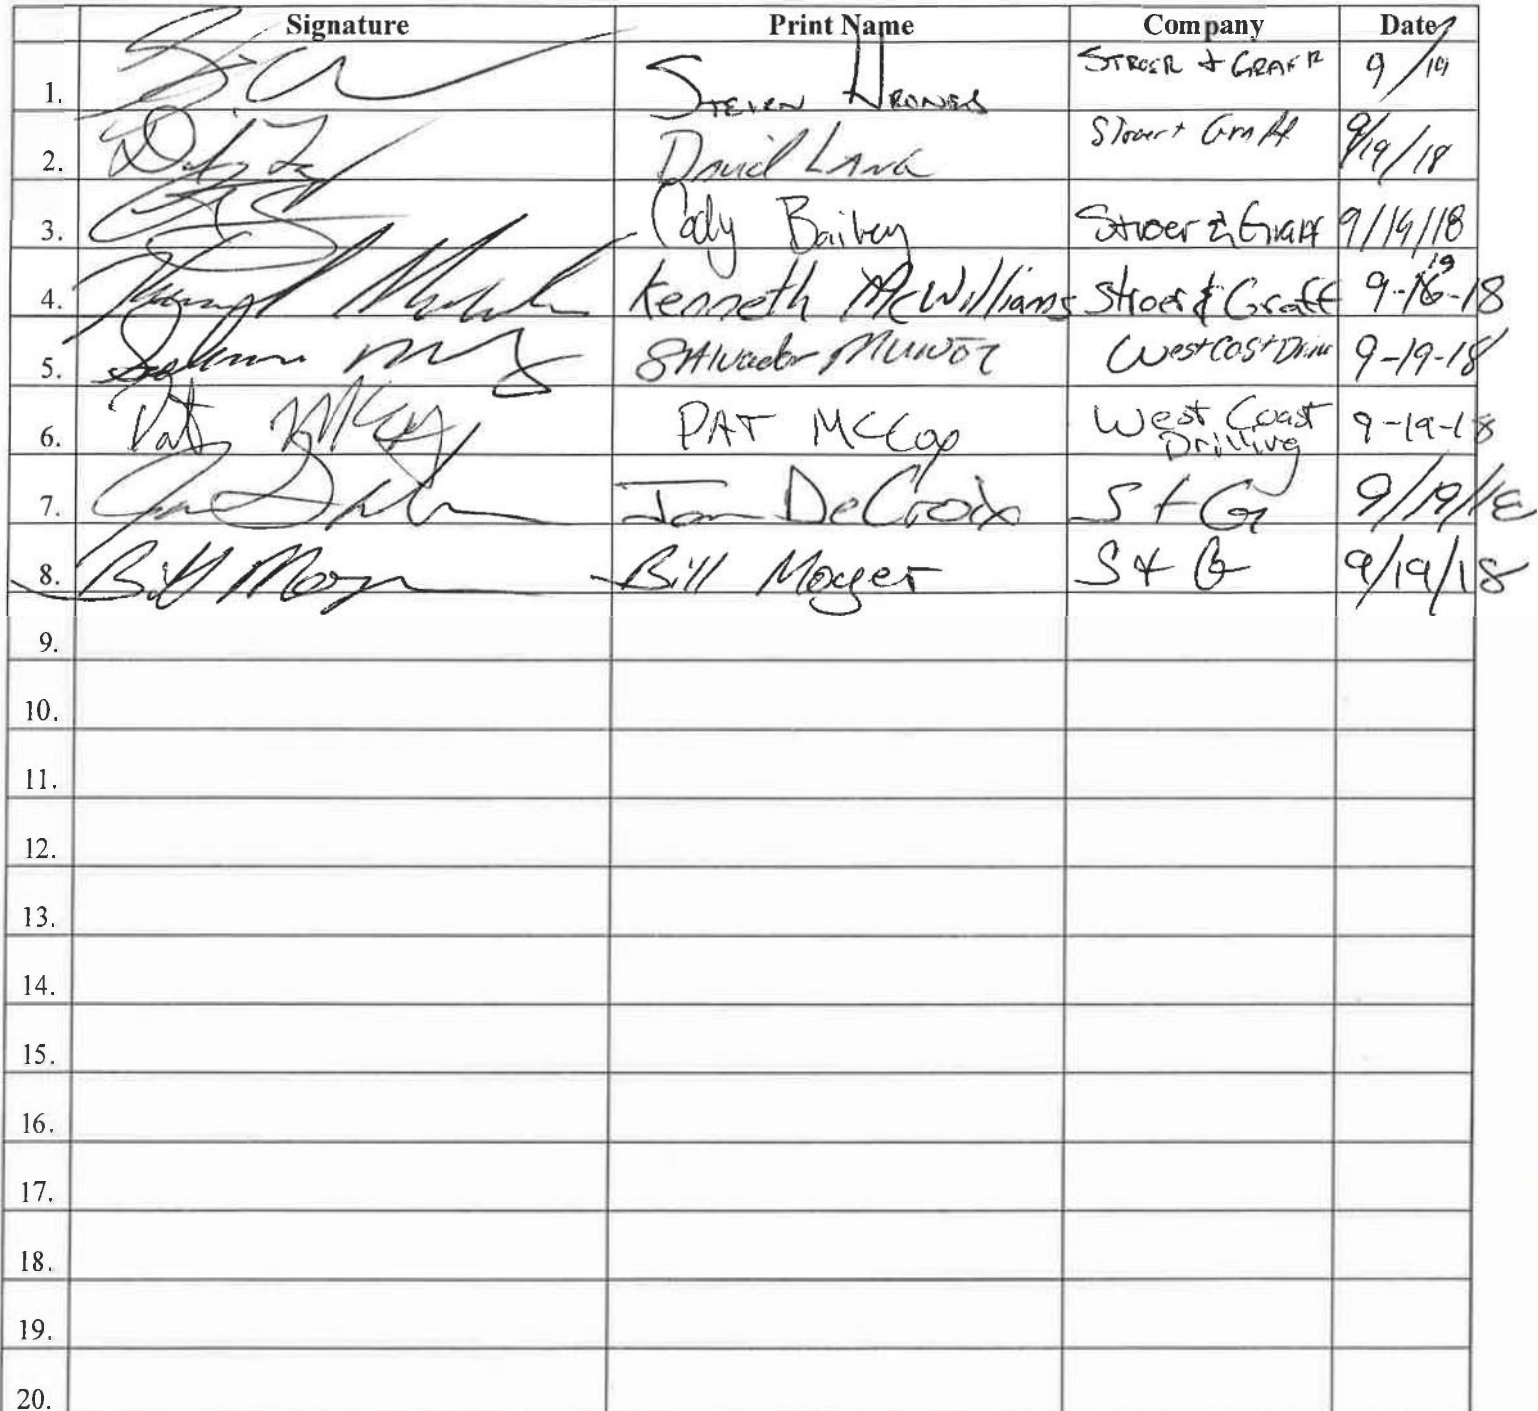 Signature Print Name Company Date
1. Steven Stroer + Graff 9/19
2. David Lang Stroer + Graff 9/19/18
3. Cody Bailey Stroer & Graff 9/19/18
4. Kenneth McWilliams Stroer & Graff 9-19-18
5. Salvador Munoz West Cost 9-19-18
6. Pat McCoy PAT McCoy West Coast Drilling 9-19-18
7. DeCroix S + G 9/19/18
8. Bill Moyer Bill Moyer S & G 9/19/18
9.
10.
11.
12.
13.
14.
15.
16.
17.
18.
19.
20.